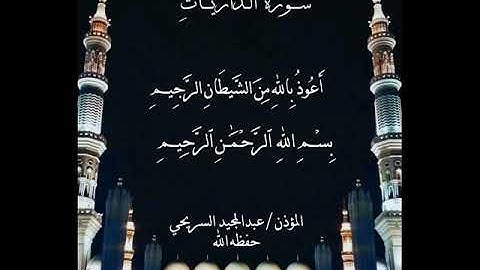 سورة الذاريات
أَعُوذُ بِاللهِ مِنَ الشَّيْطَانِ الرَّجِيمِ
بِسْمِ اللهِ الرَّحْمَٰنِ الرَّحِيمِ
المؤذن / عبدالمجيد السريحي
حفظه الله